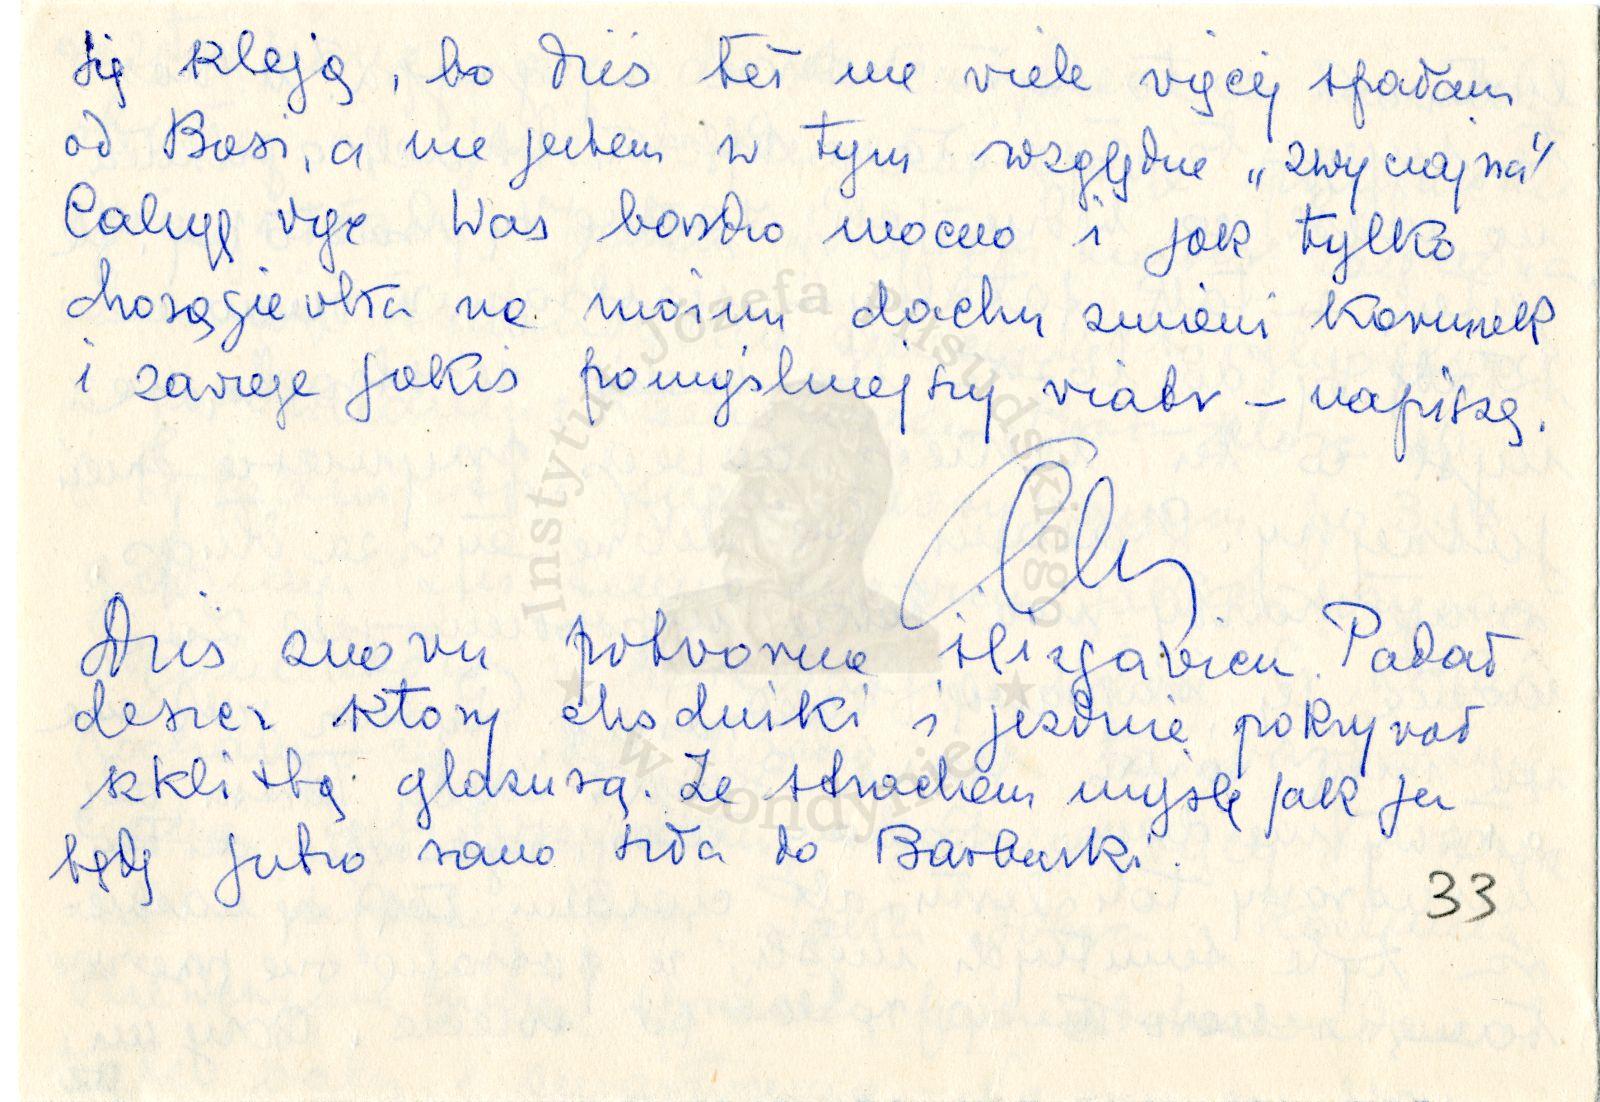 się kleją, bo dziś też nie wiele więcej spałam
od Basi, a nie jestem w tym względzie „zwyczajna”
Całuję więc Was bardzo mocno i jak tylko
chorągiewka na moim dachu zmieni kierunek
i zawieje jakiś pomyślniejszy wiatr – napiszę.
Dziś znowu potworna ślizgawica. Padał
deszcz który chodniki i jezdnię pokrywał
szklistą glazurą. Ze strachem myślę jak ja
będę jutro rano szła do Barburki.
33
Instytut Józefa Piłsudskiego
w Londynie